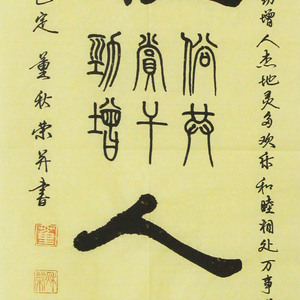 劲增人杰地灵多欢乐和睦相处万事
俗共
赏干
劲增
人
定董秋荣并书